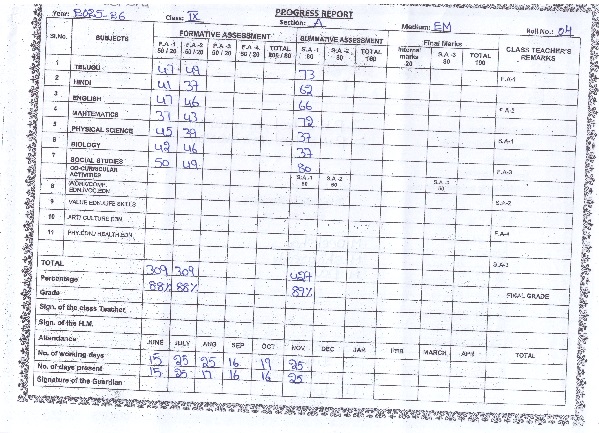 PROGRESS REPORT
Year: 2025-26 Class: IX Section: A Medium: EM Roll No.: 04
Sl.No. SUBJECTS FORMATIVE ASSESSMENT SUMMATIVE ASSESSMENT Final Marks CLASS TEACHER'S REMARKS
F.A-1 50 / 20 F.A-2 50 / 20 F.A-3 50 / 20 F.A-4 50 / 20 TOTAL 200 / 80 S.A-1 80 S.A-2 80 TOTAL 160 Internal marks 20 S.A-3 80 TOTAL 100
1 TELUGU 47 49 73 F.A-1
2 HINDI 41 37 62
3 ENGLISH 47 46 66 F.A-2
4 MATHEMATICS 37 43 72
5 PHYSICAL SCIENCE 45 39 37 S.A-1
6 BIOLOGY 42 46 37
7 SOCIAL STUDIES 50 49 80 F.A-3
CO-CURRICULAR ACTIVITIES S.A-1 S.A-2 S.A-3
8 WORK/COMP. EDN./VOC.EDN S.A-2
9 VALUE EDN./LIFE SKILLS
10 ART/ CULTURE EDN F.A-4
11 PHY.EDN./ HEALTH EDN
S.A-3
TOTAL 309 309 427
Percentage 88% 88% 89%
Grade FINAL GRADE
Sign. of the class Teacher
Sign. of the H.M.
Attendance JUNE JULY AUG SEP OCT NOV DEC JAN FEB MARCH APR TOTAL
No. of working days 15 25 25 16 19 25
No. of days present 15 25 17 16 16 25
Signature of the Guardian